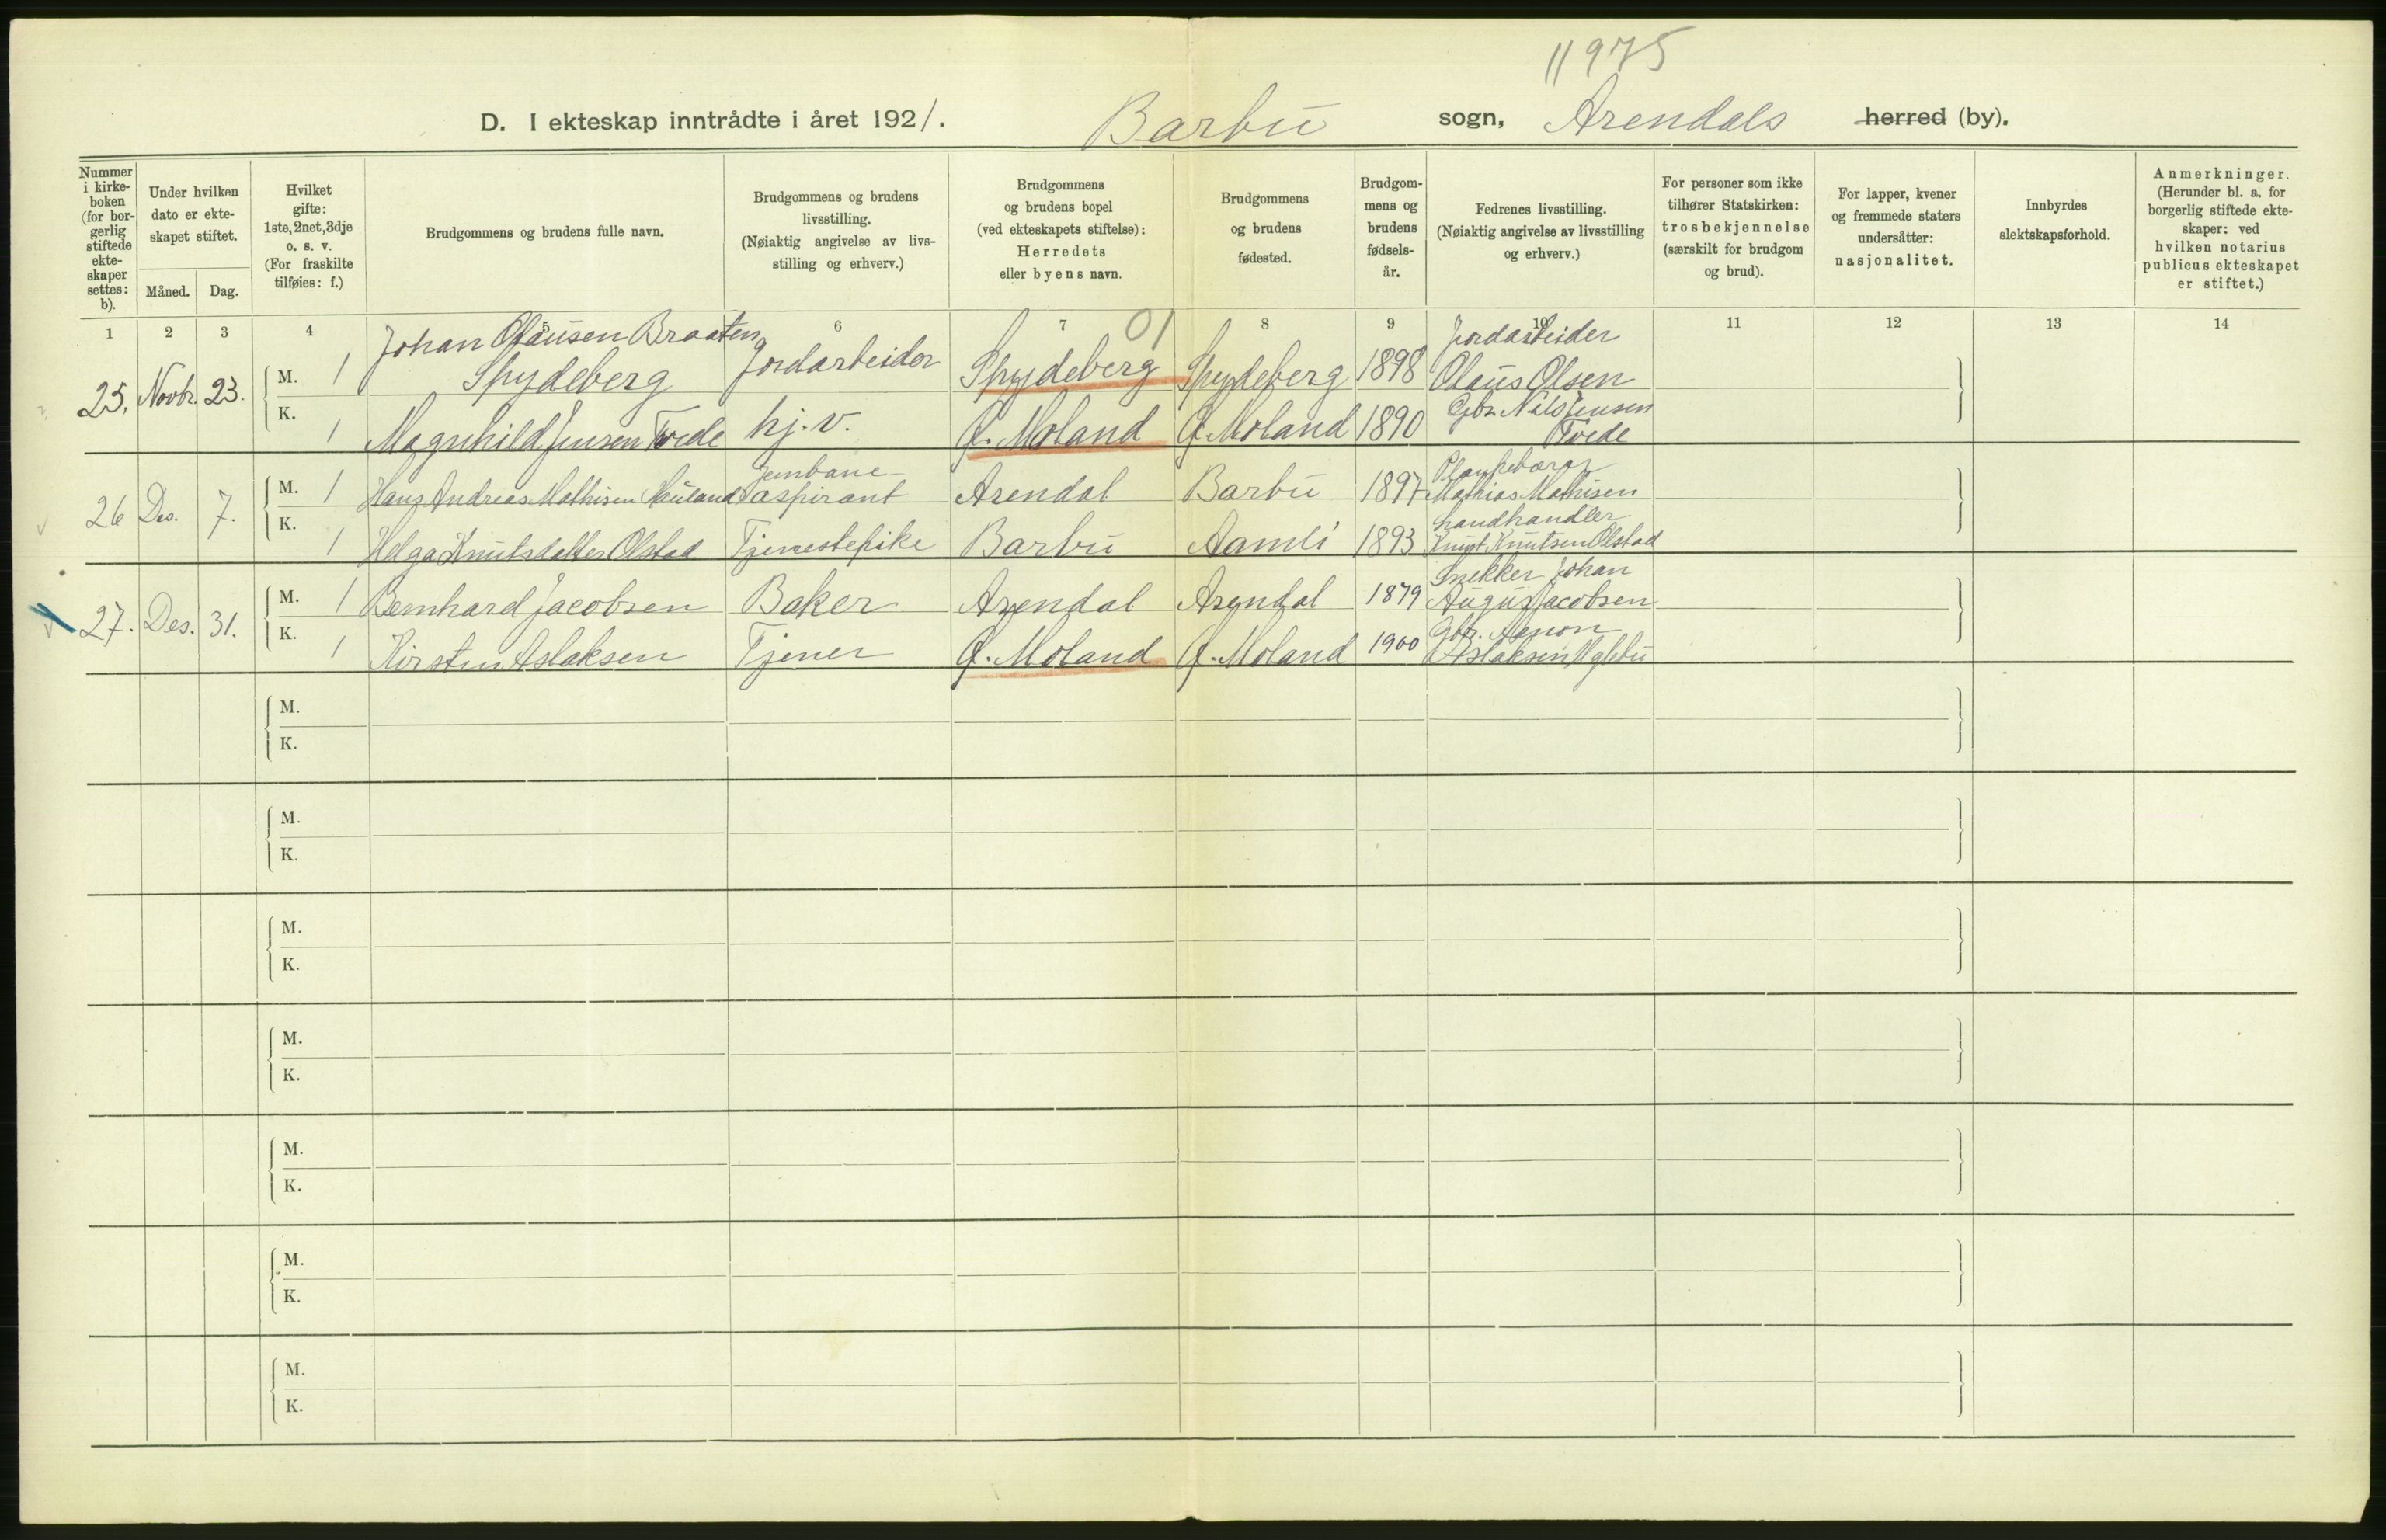 11975
D. I ekteskap inntrådte i året 1921. Barbu sogn, Arendals herred (by).
Nummer i kirkeboken (for borgerlig stiftede ekteskaper settes: b).
Under hvilken dato er ekteskapet stiftet.
Måned. Dag.
Hvilket gifte: 1ste, 2net, 3dje o. s. v. (For fraskilte tilføies: f.)
Brudgommens og brudens fulle navn.
Brudgommens og brudens livsstilling. (Nøiaktig angivelse av livsstilling og erhverv.)
Brudgommens og brudens bopel (ved ekteskapets stiftelse): Herredets eller byens navn.
Brudgommens og brudens fødested.
Brudgommens og brudens fødselsår.
Fedrenes livsstilling. (Nøiaktig angivelse av livsstilling og erhverv.)
For personer som ikke tilhører Statskirken: trosbekjennelse (særskilt for brudgom og brud).
For lapper, kvener og fremmede staters undersåtter: nasjonalitet.
Innbyrdes slektskapsforhold.
Anmerkninger. (Herunder bl. a. for borgerlig stiftede ekteskaper: ved hvilken notarius publicus ekteskapet er stiftet.)
1 2 3 4 5 6 7 8 9 10 11 12 13 14
01
25. Novbr. 23. M. 1 Johan Olausen Braaten Spydeberg Jordarbeider Spydeberg Spydeberg 1898 Jordarbeider Olaus Olsen
K. 1 Magnhild Jensen Tvede hj. v. Ø. Moland Ø. Moland 1890 Gbr. Nils Jensen Tvede
26 Des. 7. M. 1 Hans Andreas Mathisen Hauland Jernbaneaspirant Arendal Barbu 1897 Mathias Mathisen
K. 1 Helga Knutsdatter Olstad Tjenestepike Barbu Aamli 1893 Landhandler Knut Knutsen Olstad
27. Des. 31. M. 1 Bernhard Jacobsen Baker Arendal Arendal 1879 Snekker Johan August Jacobsen
K. 1 Kirsten Aslaksen Tjener Ø. Moland Ø. Moland 1900 Gbr. Aanon Aslaksen
M.
K.
M.
K.
M.
K.
M.
K.
M.
K.
M.
K.
M.
K.